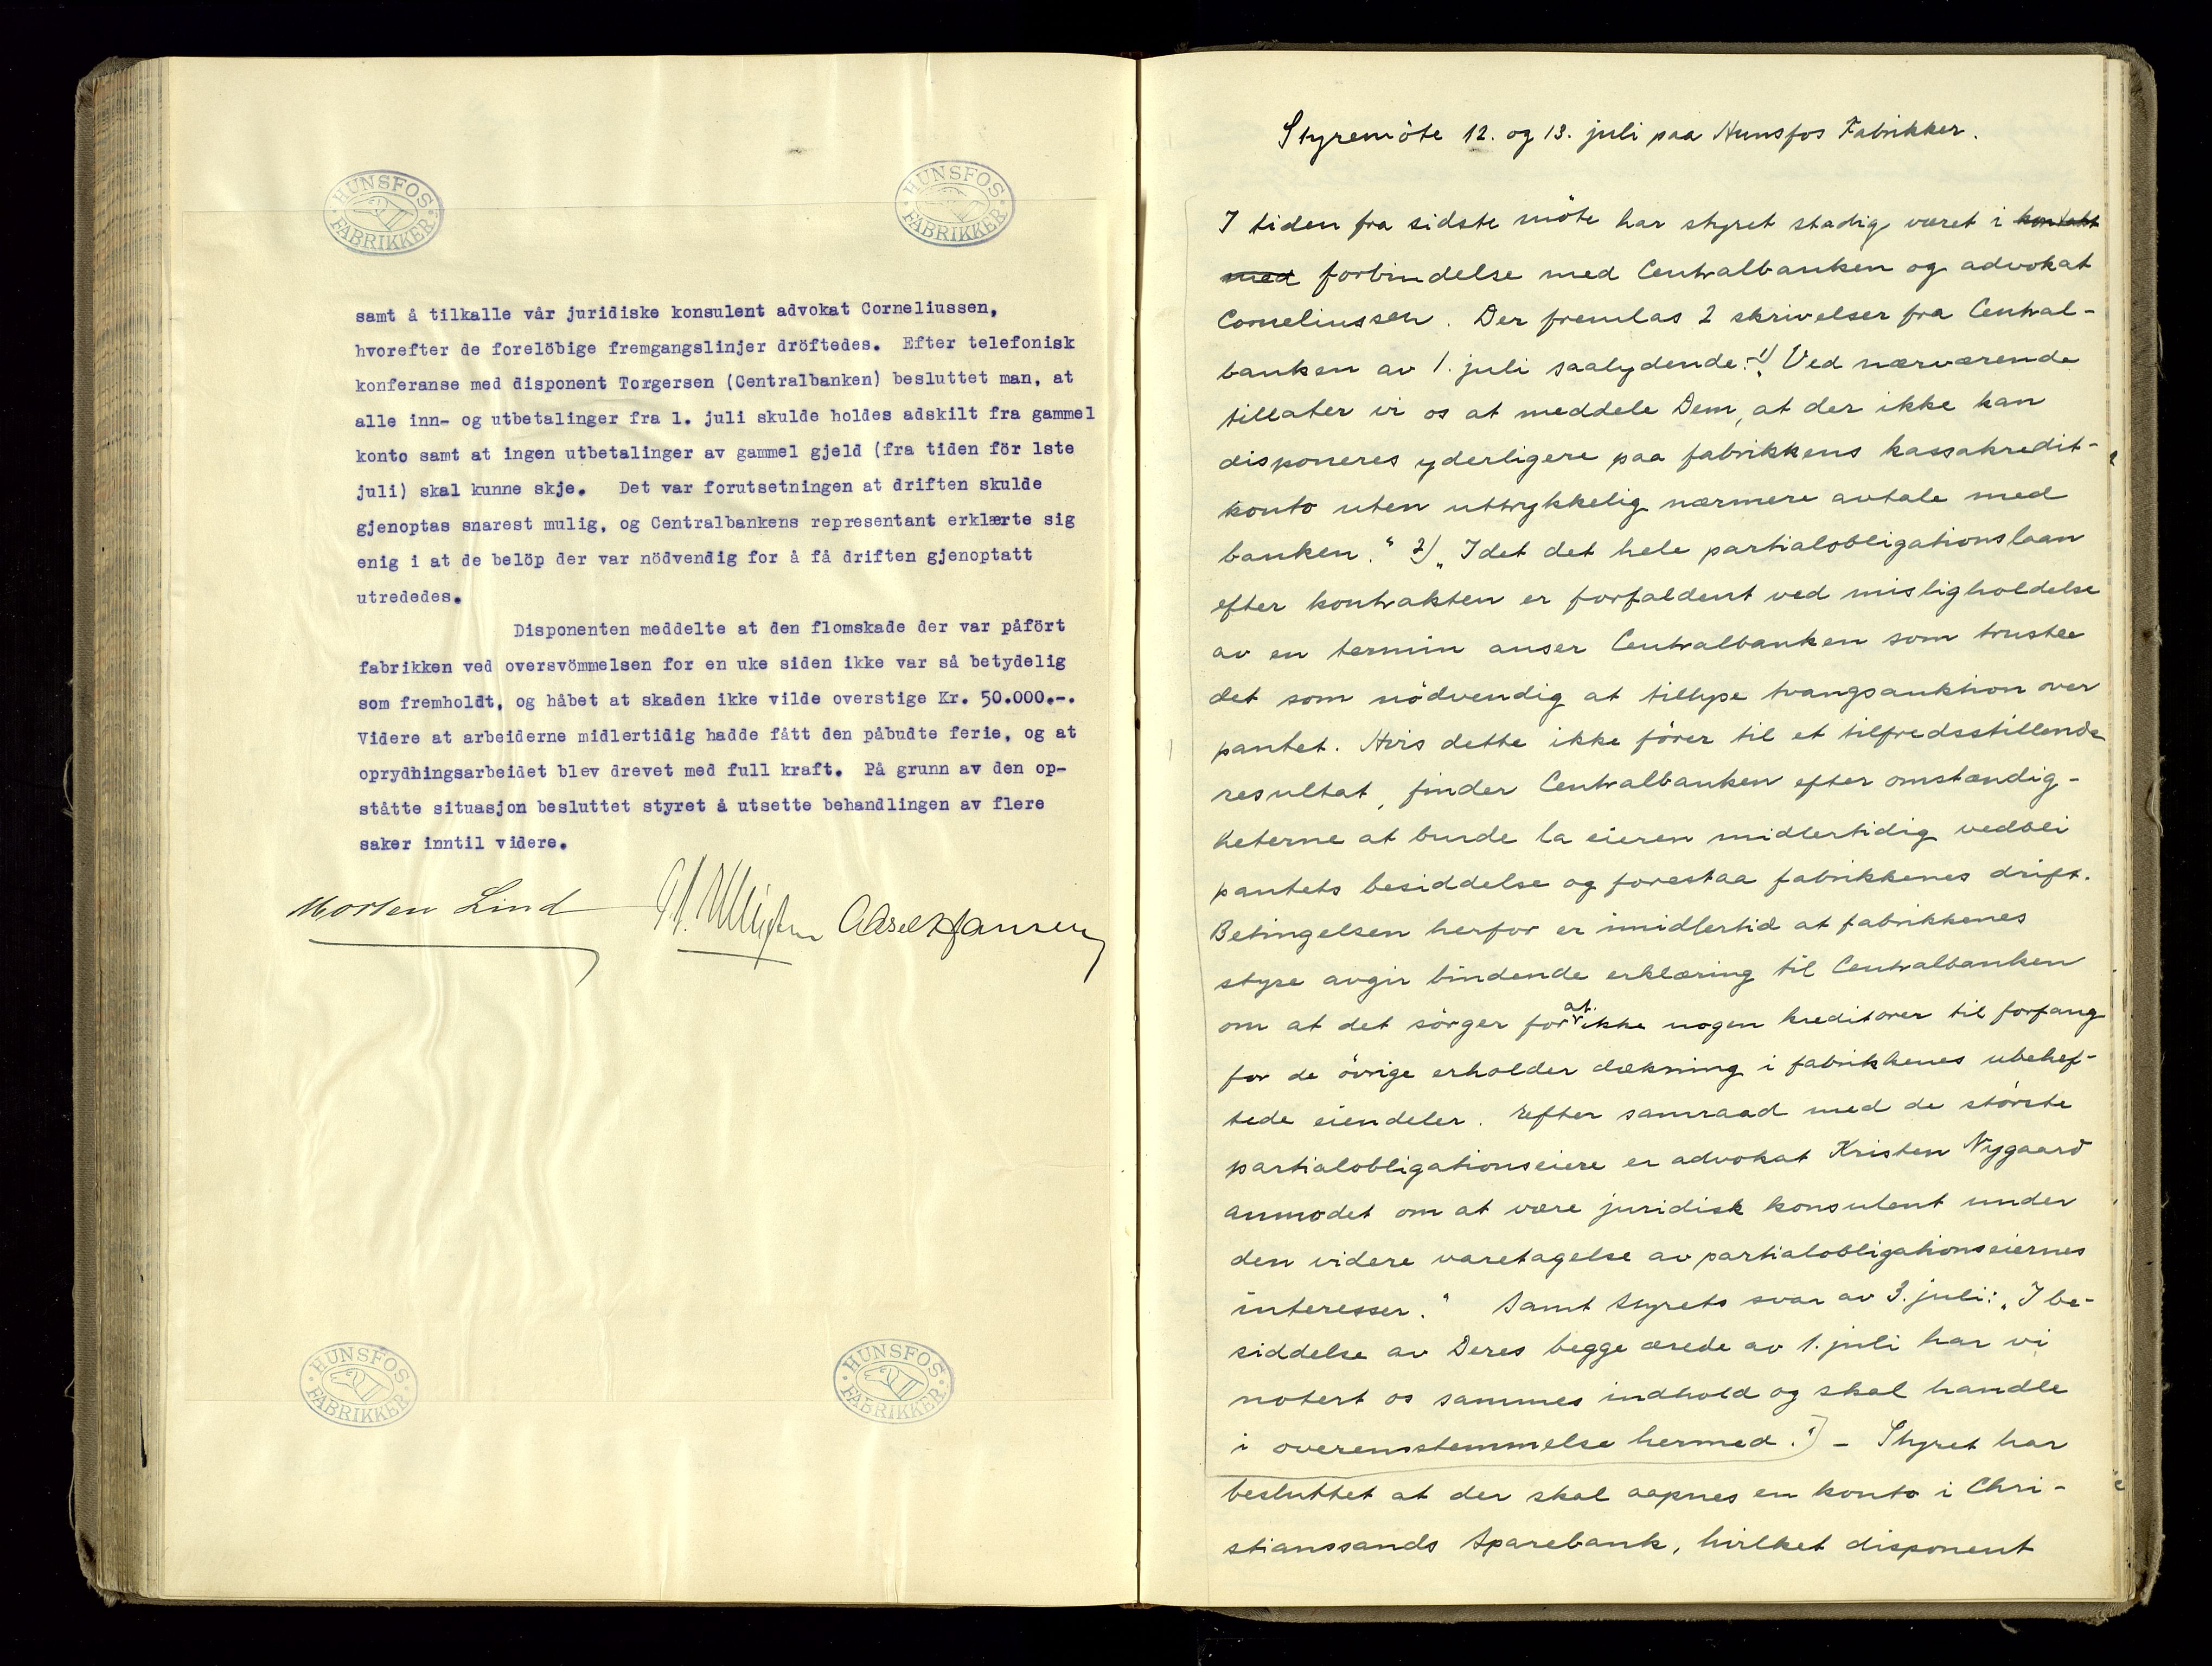 HUNSFOS FABRIKKER
HUNSFOS FABRIKKER
samt å tilkalle vår juridiske konsulent advokat Corneliussen,
hvorefter de forelöbige fremgangslinjer dröftedes. Efter telefonisk
konferanse med disponent Torgersen (Centralbanken) besluttet man, at
alle inn- og utbetalinger fra 1. juli skulde holdes adskilt fra gammel
konto samt at ingen utbetalinger av gammel gjeld (fra tiden för 1ste
juli) skal kunne skje. Det var forutsetningen at driften skulde
gjenoptas snarest mulig, og Centralbankens representant erklærte sig
enig i at de belöp der var nödvendig for å få driften gjenoptatt
utrededes.
Disponenten meddelte at den flomskade der var påfört
fabrikken ved oversvömmelsen for en uke siden ikke var så betydelig
som fremholdt, og håbet at skaden ikke vilde overstige Kr. 50.000.-.
Videre at arbeiderne midlertidig hadde fått den påbudte ferie, og at
oprydhingsarbeidet blev drevet med full kraft. På grunn av den op-
ståtte situasjon besluttet styret å utsette behandlingen av flere
saker inntil videre.
Morten Lind Aksel Hansen
HUNSFOS FABRIKKER
HUNSFOS FABRIKKER
Styremöte 12. og 13. juli paa Hunsfos Fabrikker.
I tiden fra sidste möte har styret stadig været i kontakt
med forbindelse med Centralbanken og advokat
Corneliussen. Der fremlas 2 skrivelser fra Central-
banken av 1. juli saalydende: 1) „Ved nærværende
tillater vi os at meddele Dem, at der ikke kan
disponeres yderligere paa fabrikkens kassakredit-
konto uten uttrykkelig nærmere avtale med
banken." 2) „Idet det hele partialobligationslaan
efter kontrakten er forfaldent ved misligholdelse
av en termin anser Centralbanken som trustee
det som nödvendig at tillyse tvangsauktion over
pantet. Hvis dette ikke förer til et tilfredsstillende
resultat, finder Centralbanken efter omstændig-
heterne at burde la eieren midlertidig vedbli
pantets besiddelse og forestaa fabrikkenes drift.
Betingelsen herfor er imidlertid at fabrikkenes
styre avgir bindende erklæring til Centralbanken
om at det sörger for at ikke nogen kreditorer til forfang
for de övrige erholder dækning i fabrikkenes ubehef-
tede eiendeler. Efter samraad med de störste
partialobligationseiere er advokat Kristen Nygaard
anmodet om at være juridisk konsulent under
den videre varetagelse av partialobligationseiernes
interesser." Samt styrets svar av 3. juli: „I be-
siddelse av Deres begge ærede av 1. juli har vi
notert os sammes indhold og skal handle
i overensstemmelse hermed."] - Styret har
besluttet at der skal aapnes en konto i Chri-
stianssands Sparebank, hvilket disponent